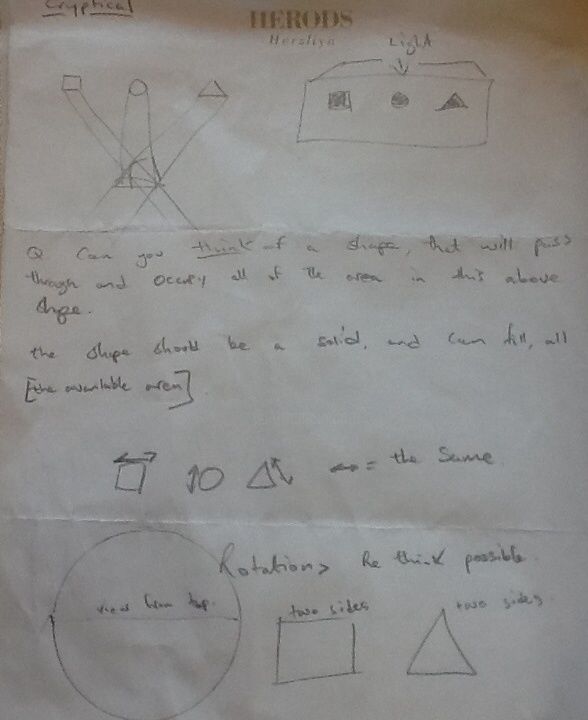 Cryptical
HERODS
Herzliya
Light
Q Can you think of a shape, that will pass
through and occupy all of the area in this above
shape.
the shape should be a solid, and can fill, all
[the available area]
↔ = the same
Rotation> Re think possible.
view from top.
two sides
two sides